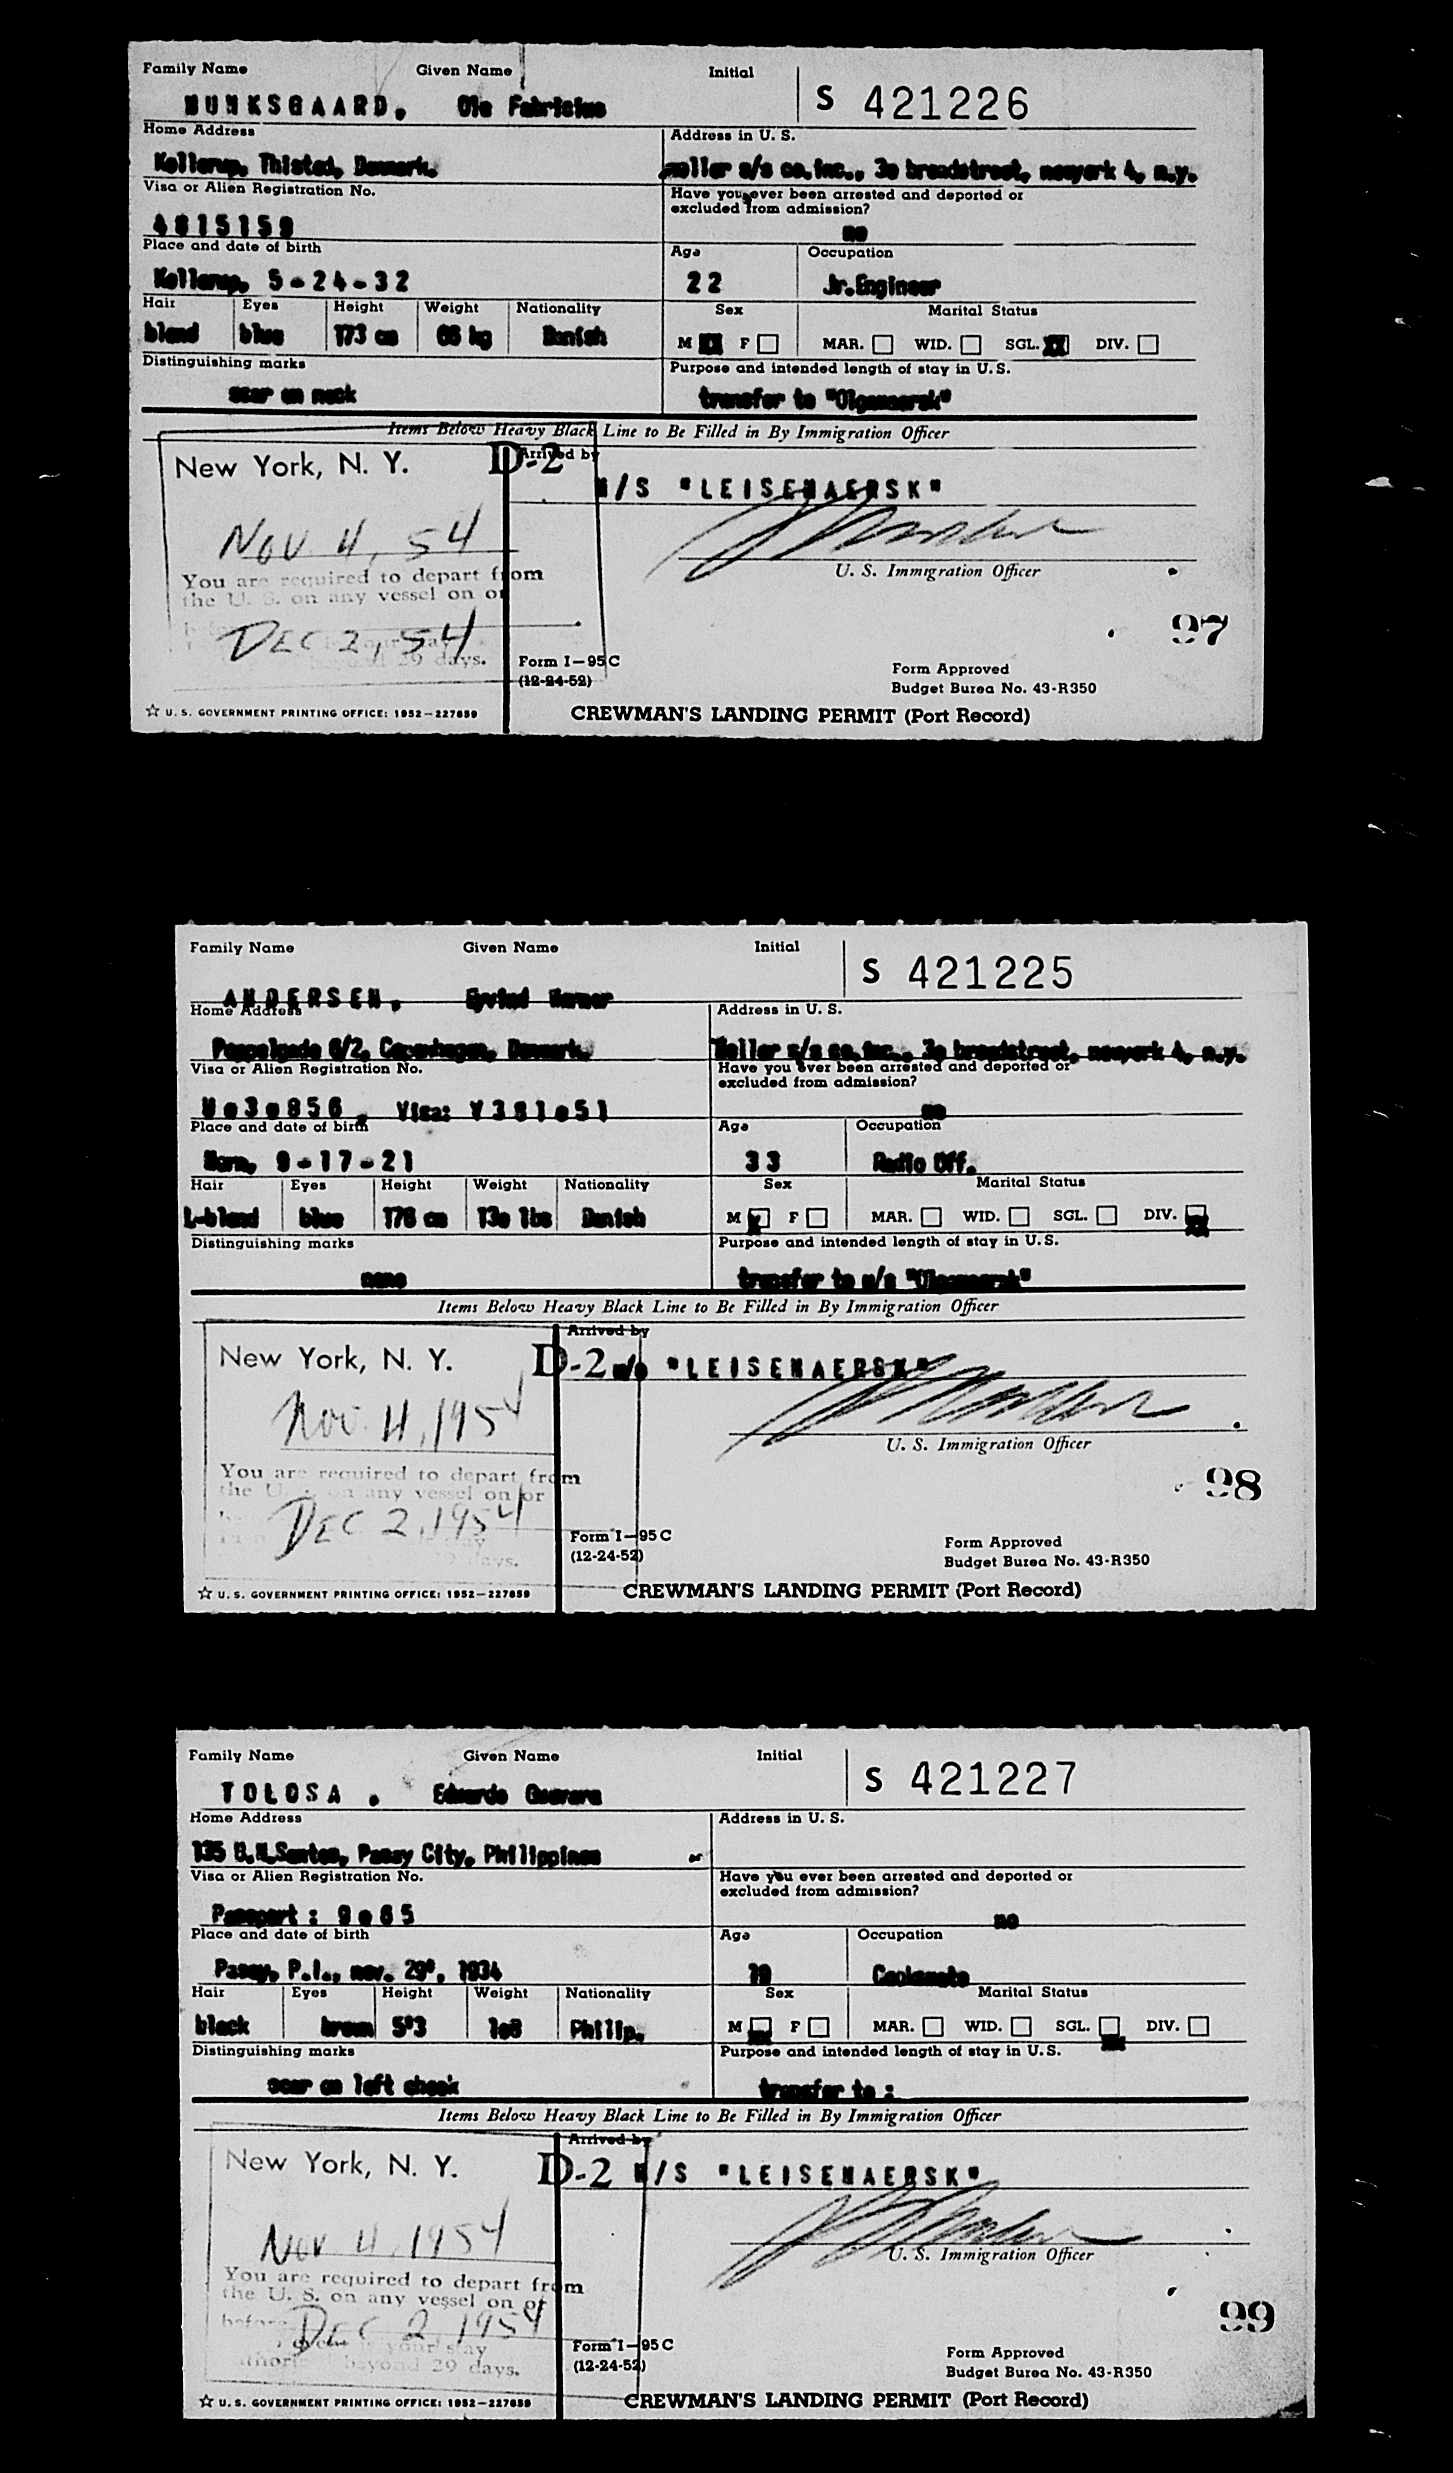 Family Name Given Name Initial
MUNKSGAARD, Ole Fabricius S 421226
Home Address Address in U. S.
Kollerup, Thisted, Denmark. moller s/s co.inc., 3o broadstreet, newyork 4, n.y.
Visa or Alien Registration No. Have you ever been arrested and deported or
excluded from admission?
4815159 no
Place and date of birth Age Occupation
Kollerup, 5-24-32 22 Jr.Engineer
Hair Eyes Height Weight Nationality Sex Marital Status
blond blue 173 cm 66 kg Danish M F MAR. WID. SGL. DIV.
Distinguishing marks Purpose and intended length of stay in U.S.
scar on neck transfer to "Olgamaersk"
Items Below Heavy Black Line to Be Filled in By Immigration Officer
New York, N. Y. D-2 Arrived by
M/S "LEISEMAERSK"
Nov 4, 54
U. S. Immigration Officer
You are required to depart from
the U. S. on any vessel on or
DEC 2, 54 97
29 days. Form I-95C Form Approved
(12-24-52) Budget Burea No. 43-R350
☆ U. S. GOVERNMENT PRINTING OFFICE: 1952—227659 CREWMAN'S LANDING PERMIT (Port Record)
Family Name Given Name Initial
ANDERSEN, Eyvind Werner S 421225
Home Address Address in U. S.
Poppelgade 6/2, Copenhagen, Denmark. Moller s/s co.inc., 3o broadstreet, newyork 4, n.y.
Visa or Alien Registration No. Have you ever been arrested and deported or
excluded from admission?
Visa: V381o51 no
Place and date of birth Age Occupation
9-17-21 33 Radio Off.
Hair Eyes Height Weight Nationality Sex Marital Status
L-blond blue 176 cm 13o lbs Danish M F MAR. WID. SGL. DIV.
Distinguishing marks Purpose and intended length of stay in U.S.
none transfer to m/s "Olgamaersk"
Items Below Heavy Black Line to Be Filled in By Immigration Officer
New York, N. Y. Arrived by
D-2 m/s "LEISEMAERSK"
Nov. 4, 1954
U. S. Immigration Officer
You are required to depart from
the U. S. on any vessel on or 98
DEC 2, 1954
Form I-95C Form Approved
29 days. (12-24-52) Budget Burea No. 43-R350
☆ U. S. GOVERNMENT PRINTING OFFICE: 1952—227659 CREWMAN'S LANDING PERMIT (Port Record)
Family Name Given Name Initial
TOLOSA, Eduardo Guevara S 421227
Home Address Address in U. S.
Pasay City, Philippines
Visa or Alien Registration No. Have you ever been arrested and deported or
excluded from admission?
Passport: 9o65 no
Place and date of birth Age Occupation
Pasay, P.I., nov. 29', 1934 19 Cooksmate
Hair Eyes Height Weight Nationality Sex Marital Status
black brown 5'3 1o8 Philip. M F MAR. WID. SGL. DIV.
Distinguishing marks Purpose and intended length of stay in U.S.
scar on left cheek transfer to:
Items Below Heavy Black Line to Be Filled in By Immigration Officer
New York, N. Y. Arrived by
D-2 M/S "LEISEMAERSK"
Nov 4, 1954
U. S. Immigration Officer
You are required to depart from
the U. S. on any vessel on or
before DEC 2, 1954 99
your stay Form I-95C Form Approved
beyond 29 days. (12-24-52) Budget Burea No. 43-R350
☆ U. S. GOVERNMENT PRINTING OFFICE: 1952—227659 CREWMAN'S LANDING PERMIT (Port Record)